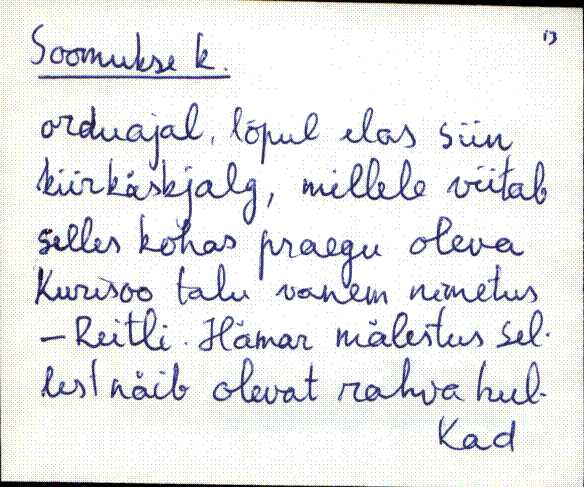 13
Soomukse k.
orduajal, lõpul elas siin
kiirkäskjalg, millele viitab
selles kohas praegu oleva
Kurisoo talu vanem nimetus
– Reitli. Hämar mälestus sel-
lest näib olevat rahva hul-
Kad